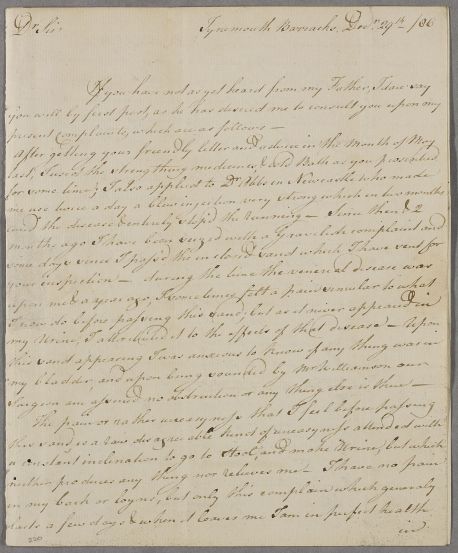 Dr. Sir
Tynemouth Barracks, Decr. 29th /86
If you have not as yet heard from my Father, I dare say
you will by first post, as he has desired me to consult you upon my
present complaints, which are as follows —
After getting your friendly letter and advice in the Month of May
last, I used the strengthning medicines, & cold Bath as you prescribed
for some time; I also applied to Dr. in Newcastle who made
me use twice a day a injection very strong which in two months
the disease & entirely stop'd the running — Since then & 2
months ago I have been seized with a Gravelish complaint and
some days since I pass'd the inclosed sand which I have sent for
your inspection — during the time the venereal disease was
upon me & a year ago, I sometimes felt a pain similar to what
I now do before passing this sand, but as it never appeared in
my Urine, I attributed it to the effects of that disease — Upon
this sand appearing I was anxious to know if any thing was in
my bladder, and upon being sounded by Mr. Williamson our
Surgeon am assured no obstruction or any thing else is there —
The pain or rather uneasyness that I feel before passing
this sand is a raw disagreeable kind of uneasyness attended with
a constant inclination to go to stool, and make Urine, but which
neither produces any thing nor relieves me — I have no pain
in my back or loyns, but only this complain which generaly
lasts a few days & when it leaves me I am in perfect health
in
220